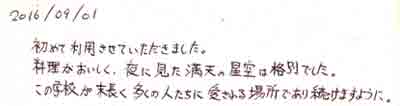 2016/09/01
初めて利用させていただきました。
料理がおいしく、夜に見た満天の星空は格別でした。
この学校が末長く多くの人たちに愛される場所であり続けますように。